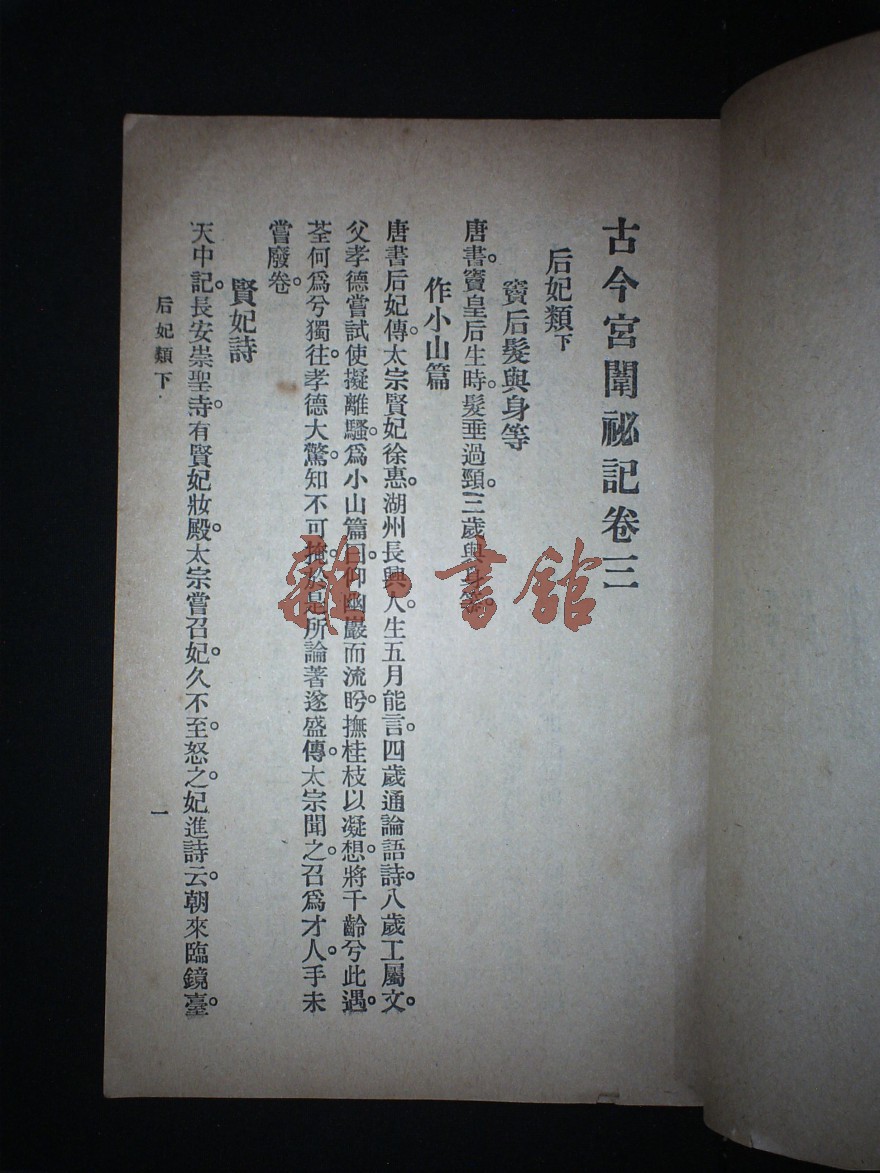 古今宮闈祕記卷三
后妃類下
竇后髮與身等
唐書。竇皇后生時。髮垂過頸。三歲與身等。
作小山篇
唐書后妃傳。太宗賢妃徐惠。湖州長興人。生五月能言。四歲通論語詩。八歲工屬文。
父孝德嘗試使擬離騷。爲小山篇曰。仰幽巖而流盻。撫桂枝以凝想。將千齡兮此遇。
荃何爲兮獨往。孝德大驚。知不可掩。於是所論著遂盛傳。太宗聞之。召爲才人。手未
嘗廢卷。
賢妃詩
天中記。長安崇聖寺。有賢妃妝殿。太宗嘗召妃。久不至。怒之。妃進詩云。朝來臨鏡臺。
后妃類下
一
雜·書館